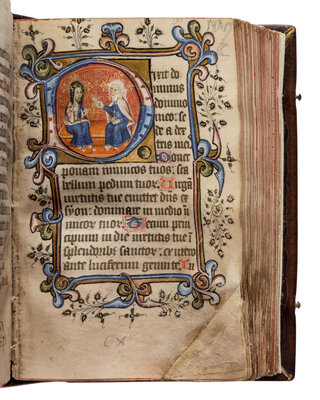 Dixit do
minus
domino
meo: se
de a dex
tris meis. Donec
ponam inimicos tuos: sca
bellum pedum tuor. Virgā
virtutis tue emittet dns ex
syon: dominare in medio ini
micor tuor. Tecum prin
cipium in die virtutis tue ī
splendoribs sanctor: ex utero
ante luciferum genui te. Iu
CX